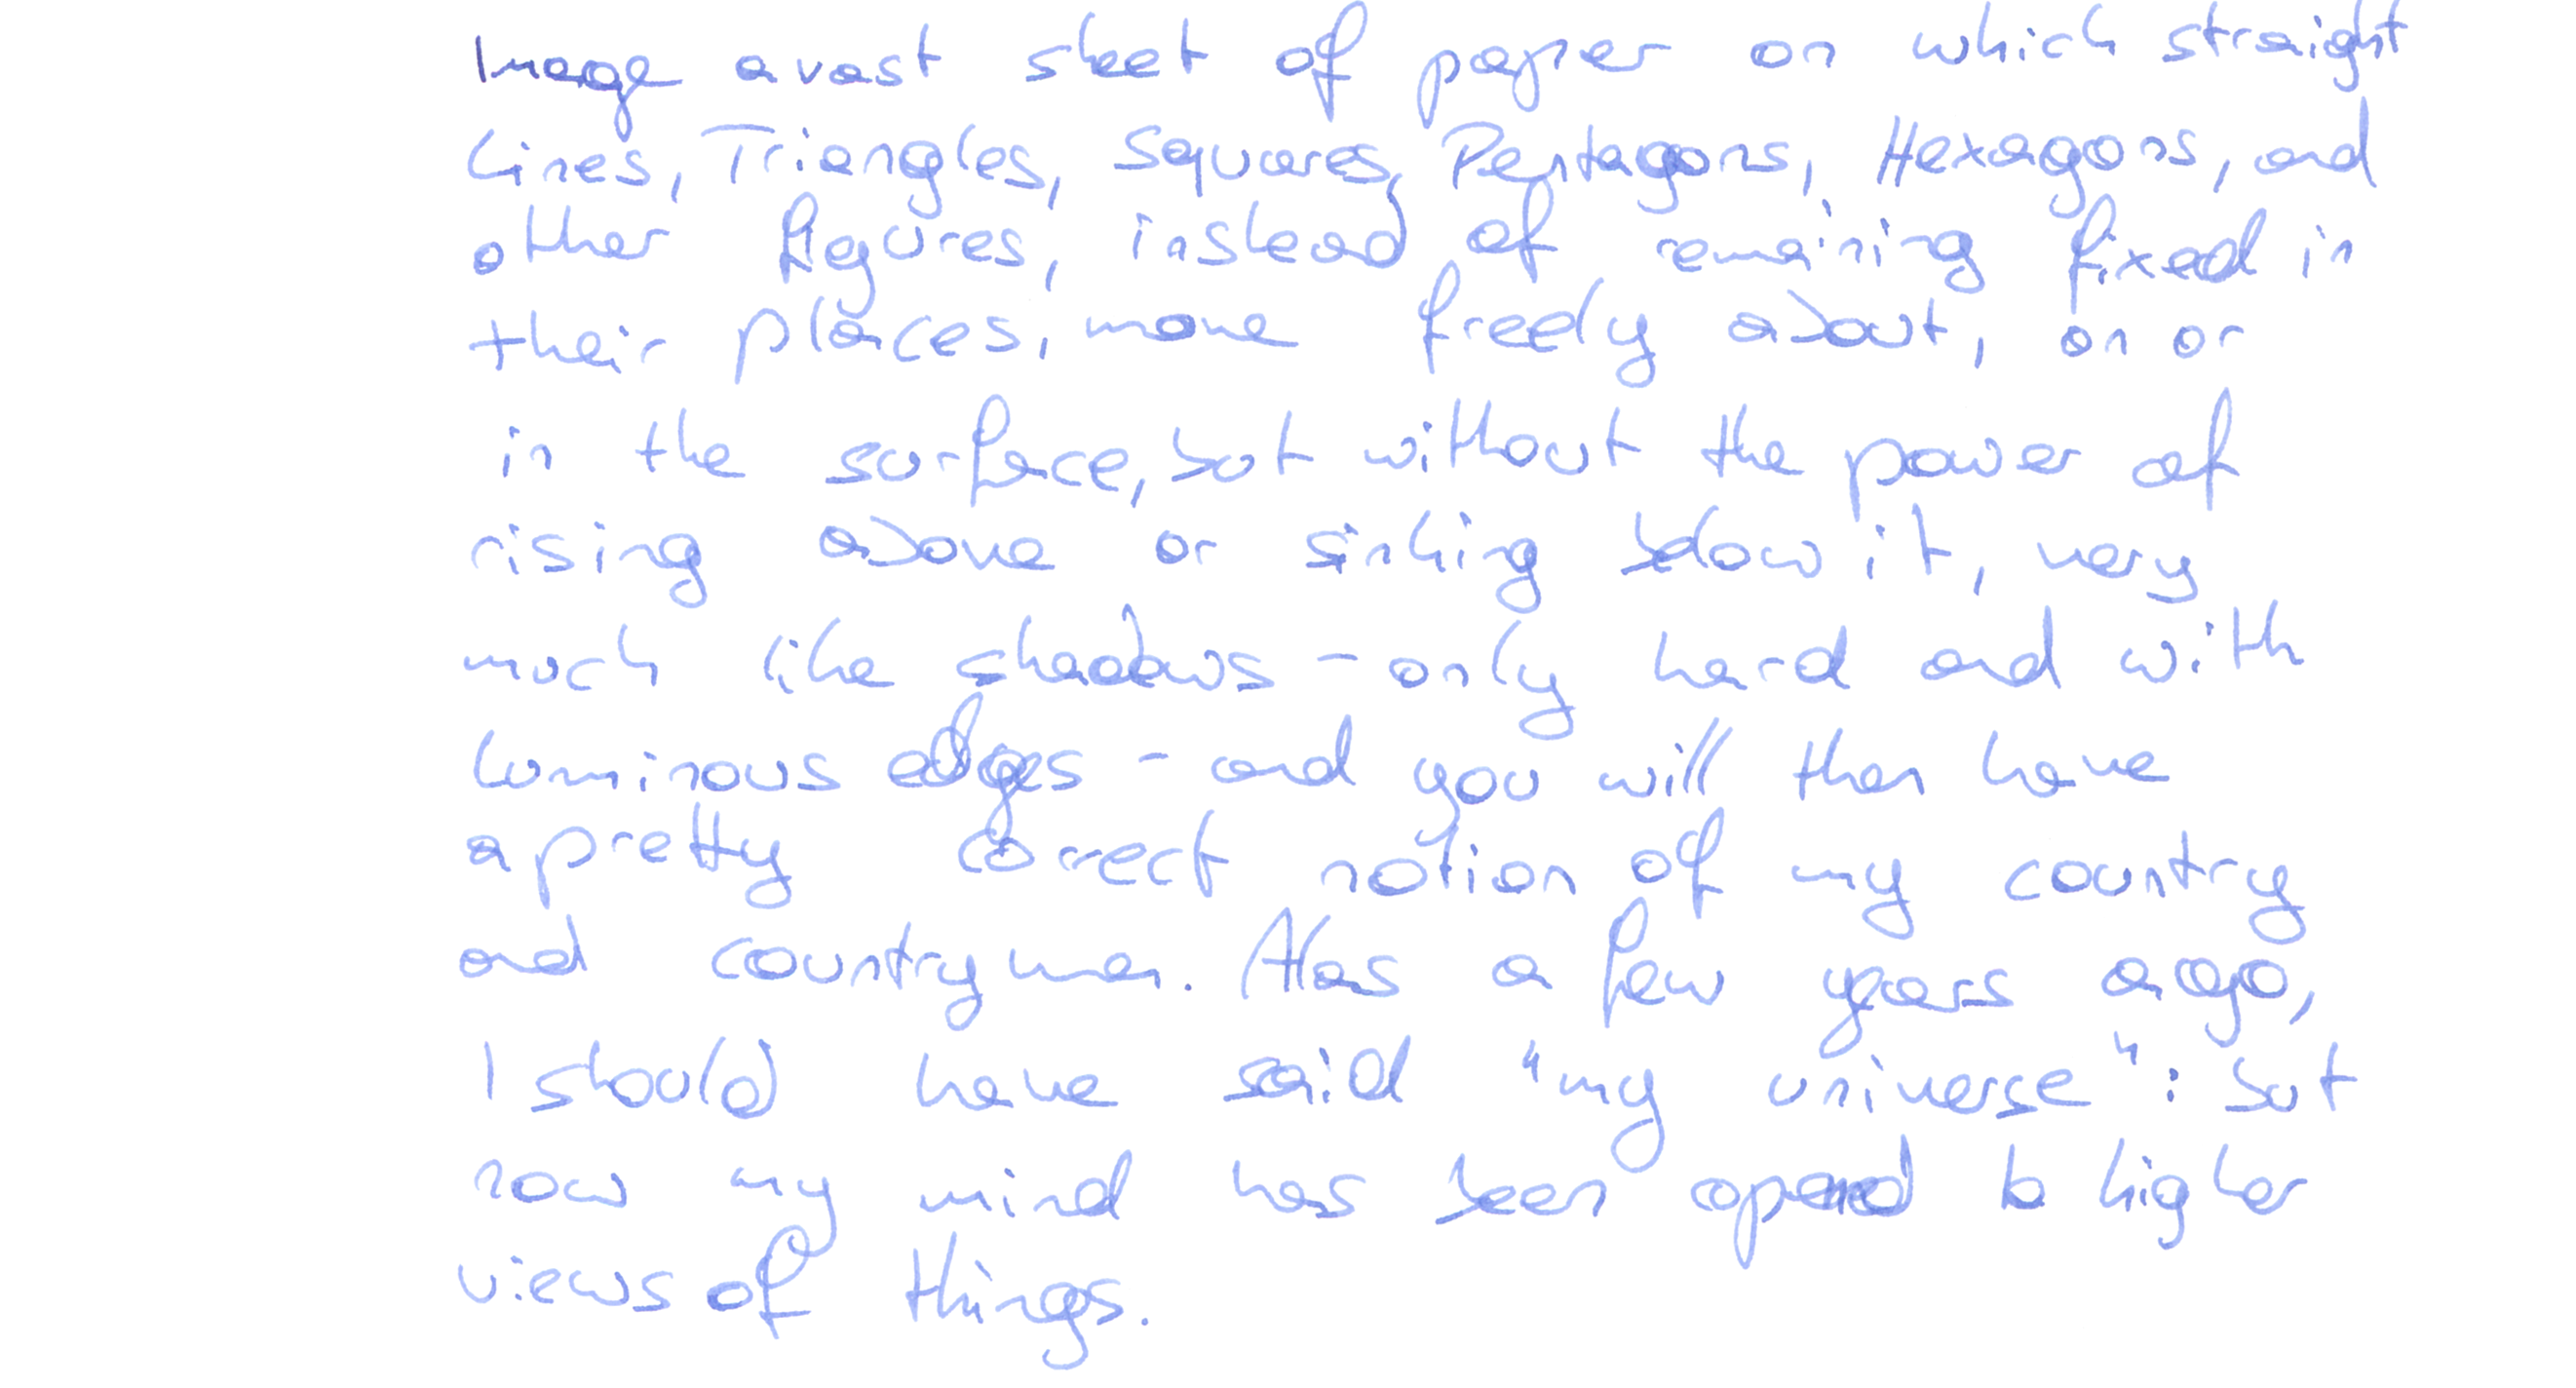 Image a vast sheet of paper on which straight
Lines, Triangles, Squares, Pentagons, Hexagons, and
other figures, instead of remaining fixed in
their places, move freely about, on or
in the surface, but without the power of
rising above or sinking below it, very
much like shadows - only hard and with
luminous edges - and you will then have
a pretty correct notion of my country
and countrymen. Alas a few years ago,
I should have said "my universe": but
now my mind has been opened to higher
views of things.